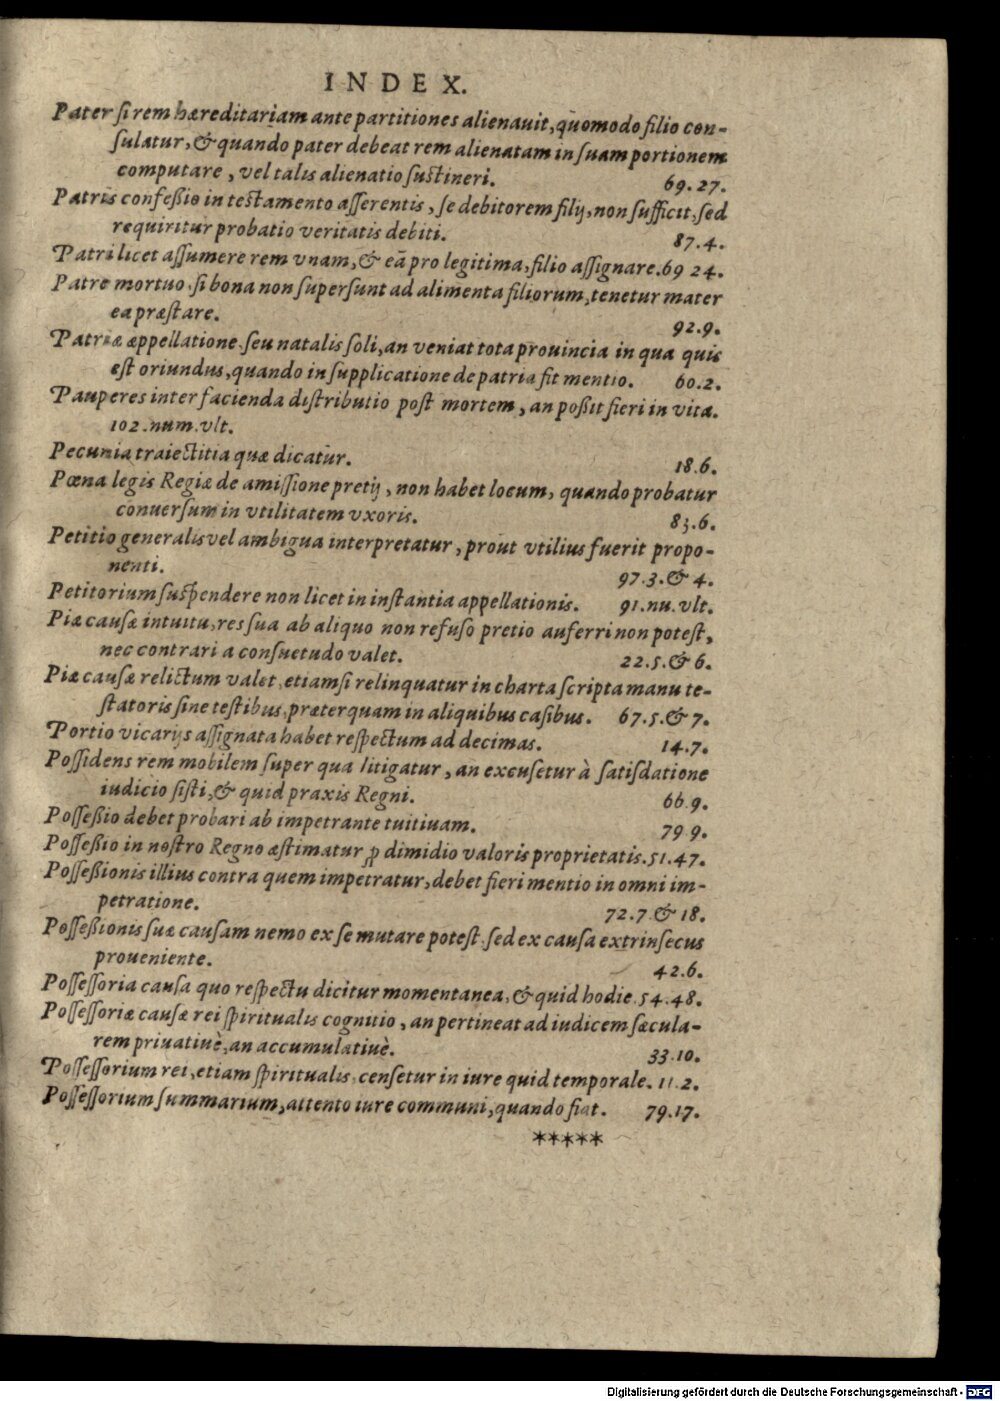 INDEX.
Pater si rem hæreditariam ante partitiones alienauit, quomodo filio con-
sulatur, & quando pater debeat rem alienatam in suam portionem
computare, vel talis alienatio sustineri. 69.27.
Patris confeßio in testamento asserentis, se debitorem filij, non sufficit, sed
requiritur probatio veritatis debiti. 87.4.
Patri licet assumere rem vnam, & eā pro legitima, filio assignare. 69 24.
Patre mortuo, si bona non supersunt ad alimenta filiorum, tenetur mater
ea præstare. 92.9.
Patriæ appellatione, seu natalis soli, an veniat tota prouincia in qua quis
est oriundus, quando in supplicatione de patria fit mentio. 60.2.
Pauperes inter facienda distributio post mortem, an poßit fieri in vita.
102.num.vlt.
Pecunia traiectitia quæ dicatur. 18.6.
Pœna legis Regiæ de amissione pretij, non habet locum, quando probatur
conuersum in vtilitatem vxoris. 83.6.
Petitio generalis vel ambigua interpretatur, prout vtilius fuerit propo-
nenti. 97.3.& 4.
Petitorium suspendere non licet in instantia appellationis. 91.nu.vlt.
Piæ causæ intuitu, res sua ab aliquo non refuso pretio auferri non potest,
nec contraria consuetudo valet. 22.5.& 6.
Piæ causæ relictum valet, etiamsi relinquatur in charta scripta manu te-
statoris sine testibus, præterquam in aliquibus casibus. 67.5.& 7.
Portio vicarijs assignata habet respectum ad decimas. 14.7.
Possidens rem mobilem super qua litigatur, an excusetur à satisdatione
iudicio sisti, & quid praxis Regni. 66.9.
Posseßio debet probari ab impetrante tuitiuam. 79 9.
Posseßio in nostro Regno æstimatur ꝓ dimidio valoris proprietatis. 51.47.
Posseßionis illius contra quem impetratur, debet fieri mentio in omni im-
petratione. 72.7.& 18.
Posseßionis suæ causam nemo ex se mutare potest, sed ex causa extrinsecus
proueniente. 42.6.
Possessoria causa quo respectu dicitur momentanea, & quid hodie. 54.48.
Possessoriæ causæ rei spiritualis cognitio, an pertineat ad iudicem sæcula-
rem priuatiuè, an accumulatiuè. 33.10.
Possessorium rei, etiam spiritualis, censetur in iure quid temporale. 11.2.
Possessorium summarium, attento iure communi, quando fiat. 79.17.
*****
Digitalisierung gefördert durch die Deutsche Forschungsgemeinschaft - DFG